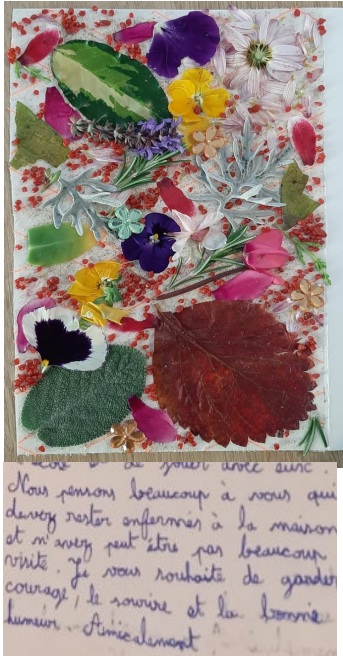 école et de jouer avec eux.
Nous pensons beaucoup à vous qui
devez rester enfermés à la maison
et n'avez peut être pas beaucoup
visite. Je vous souhaite de garder
courage, le sourire et la bonne
humeur. Amicalement